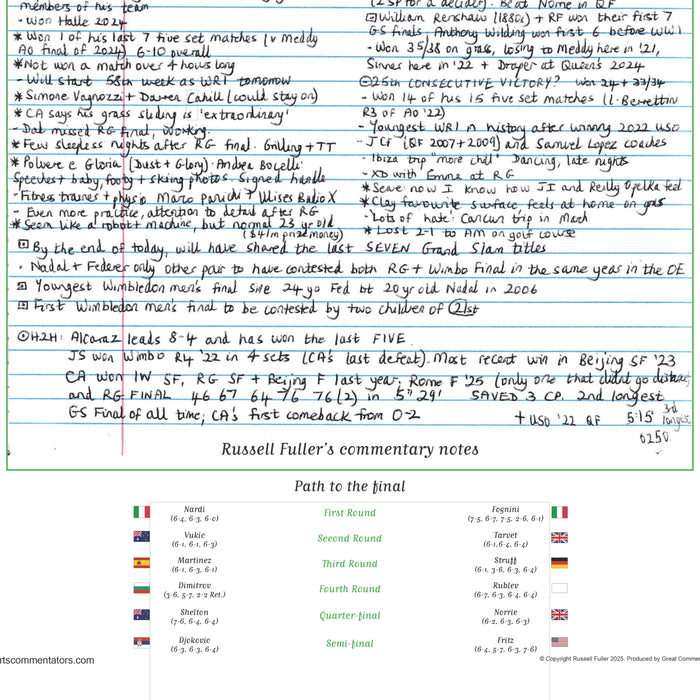 members of his team
- Won Halle 2024
* Won 1 of his last 7 five set matches (v Meddy
AO final of 2024) 6-10 overall
* Not won a match over 4 hours long
- Will start 58th week as WR1 tomorrow
* Simone Vagnozzi + Darren Cahill (could stay on)
* CA says his grass sliding is 'extraordinary'
- Dad missed RG final, working.
* Few sleepless nights after RG final. Grilling + TT
* Polvere e Gloria (Dust + Glory): Andrea Bocelli.
Speeches + baby, footy + skiing photos. Signed handle
- Fitness trainer + physio Marco Panichi + Ulises Badio X
- Even more practice, attention to detail after RG
* Seem like a robot + machine, but normal 23 yr old
($41m prize money)
(2 SP for a decider). Beat Norrie in QF
William Renshaw (1880s) + RF won their first 7
GS finals. Anthony Wilding won first 6 before WW1
- Won 35/38 on grass, losing to Meddy here in '21,
Sinner here in '22 + Draper at Queen's 2024
25th CONSECUTIVE VICTORY? Won 24 + 33/34
- Won 14 of his 15 five set matches (l: Berrettini
R3 of AO '22)
- Youngest WR1 in history after winning 2022 USO
- JCF (QF 2007 + 2009) and Samuel Lopez coaches
- Ibiza trip 'more chill' Dancing, late nights
- XD with Emma at RG
* Serve: now I know how JI and Reilly Opelka feel
* Clay favourite surface, feels at home on grass
- 'Lots of hate': Cancun trip in March
* Lost 2-1 to AM on golf course
By the end of today, will have shared the last SEVEN Grand Slam titles
· Nadal + Federer only other pair to have contested both RG + Wimbo Final in the same year in the OE
Youngest Wimbledon men's final since 24 yo Fed bt 20 yr old Nadal in 2006
First Wimbledon men's final to be contested by two children of 21st
H2H: Alcaraz leads 8-4 and has won the last FIVE
JS won Wimbo R4 '22 in 4 sets (CA's last defeat). Most recent win in Beijing SF '23
CA won IW SF, RG SF + Beijing F last year; Rome F '25 (only one that didn't go distance)
and RG FINAL 46 67 64 76 76(2) in 5"29' SAVED 3 CP. 2nd longest
GS Final of all time; CA's first comeback from 0-2
+ USO '22 QF 5:15' 3rd longest
0250.
Russell Fuller's commentary notes
Path to the final
Nardi First Round Fognini
(6-4, 6-3, 6-0) (7-5, 6-7, 7-5, 2-6, 6-1)
Vukic Second Round Tarvet
(6-1, 6-1, 6-3) (6-1, 6-4, 6-4)
Martinez Third Round Struff
(6-1, 6-3, 6-1) (6-1, 3-6, 6-3, 6-4)
Dimitrov Fourth Round Rublev
(3-6, 5-7, 2-2 Ret.) (6-7, 6-3, 6-4, 6-4)
Shelton Quarter-final Norrie
(7-6, 6-4, 6-4) (6-2, 6-3, 6-3)
Djokovic Semi-final Fritz
(6-3, 6-3, 6-4) (6-4, 5-7, 6-3, 7-6)
rtscommentators.com
© Copyright Russell Fuller 2025. Produced by Great Commen